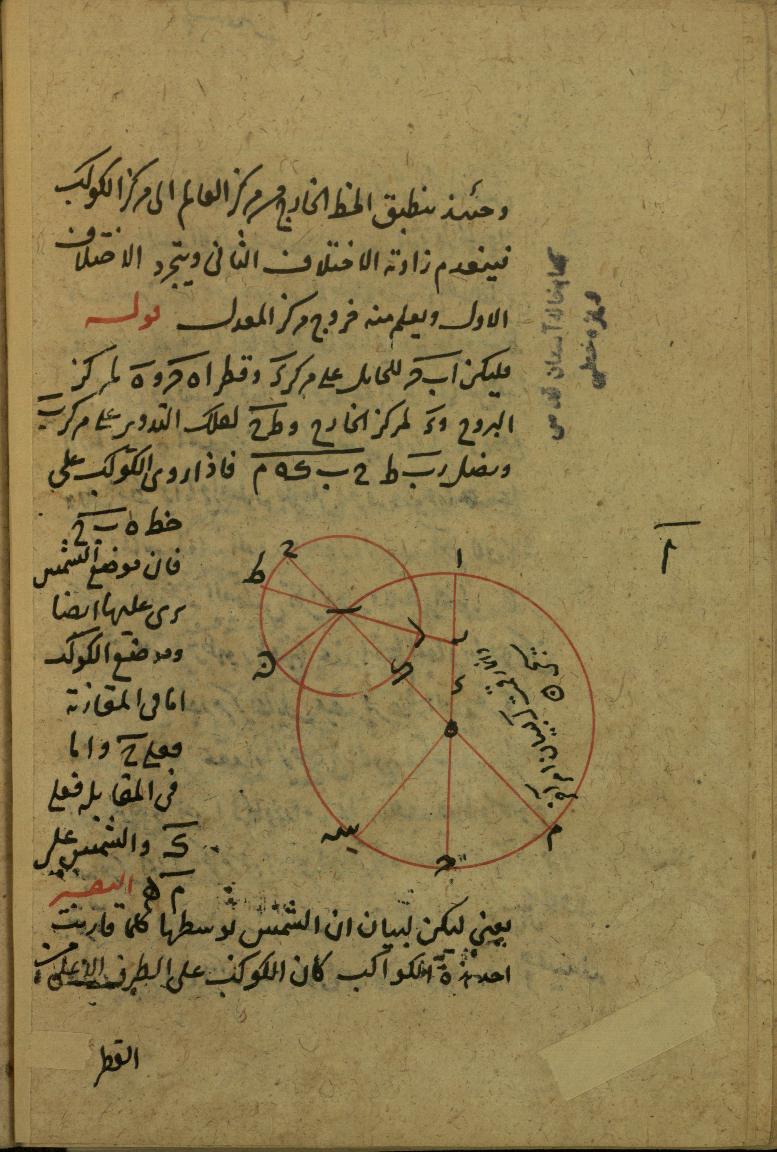 وحينئذ ينطبق الخط الخارج من مركز العالم الى مركز الكوكب
فينعدم زاوية الاختلاف الثانى ويتجرد الاختلاف
الاول ويعلم منه خروج مركز المعدل قوله
فليكن اب ح للحامل على مركز ء وقطر ا ه ح و ه لمركز
البروج و ء لمركز الخارج و ط ح لفلك التدوير على مركز ب
ونصل ر ب ط ح ب ك ه م فاذا روى الكوكب على
خط ه ب ح
فان موضع الشمس
يرى عليها ايضا
وموضع الكوكب
اما فى المقارنة
فعلى ح واما
فى المقابلة فعلى
ك والشمس على
م
يعنى ليكن لبيان ان الشمس بوسطها كلما قارنت
احد هذه الكواكب كان الكوكب على الطرف الاعلى من
القطر
م
ح
ط
ا
ب
ر
ء
ن
ك
ه
م
ح